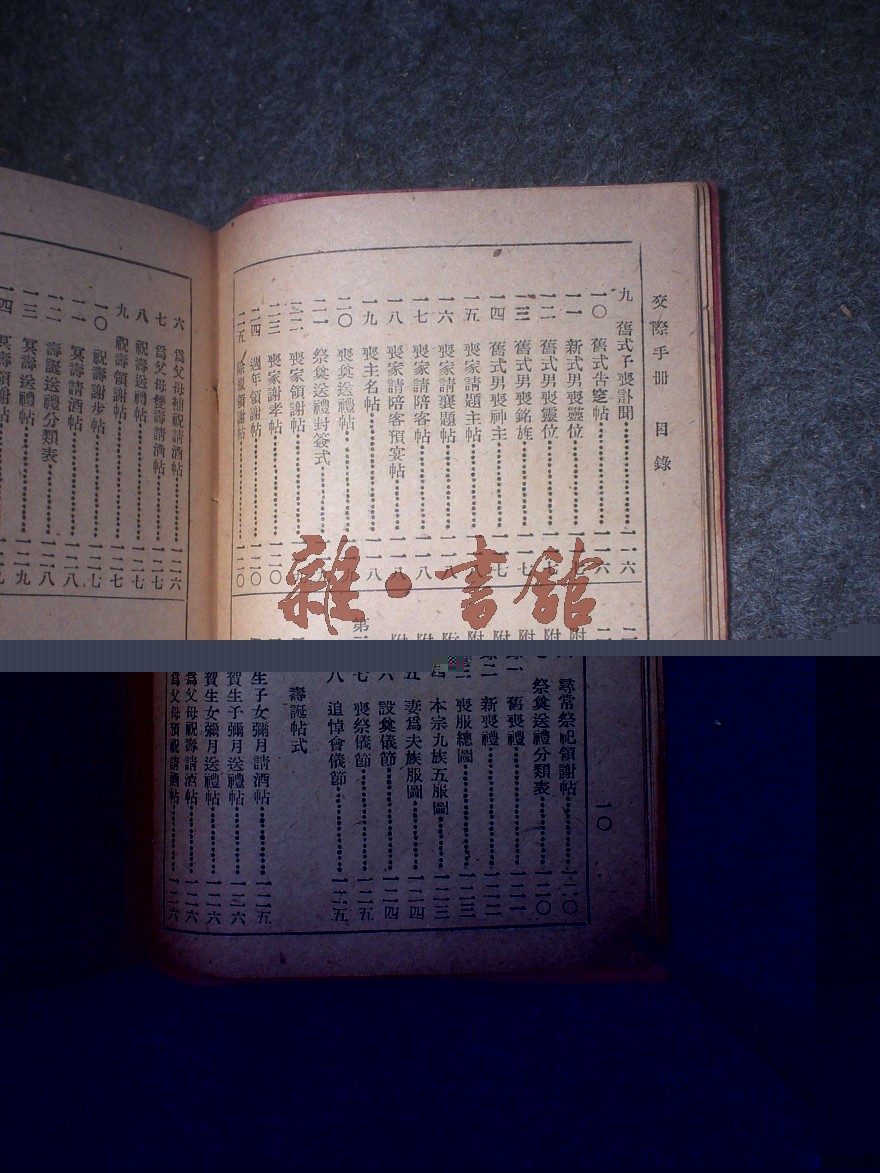 交際手冊 目錄
一〇
九 舊式子喪訃聞 一一六
一〇 舊式告窆帖 一一六
一一 新式男喪靈位
一二 舊式男喪靈位
一三 舊式男喪銘旌
一四 舊式男喪神主
一五 喪家請題主帖
一六 喪家請襄題帖
一七 喪家請陪客帖 一一八
一八 喪家請陪客預宴帖 一一八
一九 喪主名帖 一一八
二〇 喪奠送禮帖
二一 祭奠送禮封簽式
二二 喪家領謝帖
二三 喪家謝孝帖 一二〇
二四 週年領謝帖 一二〇
二五 除服領謝帖 一二〇
尋常祭祀領謝帖 一二〇
祭奠送禮分類表 一二〇
舊喪禮 一二一
二 新喪禮 一二二
三 喪服總圖 一二三
四 本宗九族五服圖 一二三
五 妻爲夫族服圖 一二四
六 設奠儀節 一二四
七 喪祭儀節 一二五
八 追悼會儀節 一二五
壽誕帖式
生子女彌月請酒帖 一二五
賀生子彌月送禮帖 一二六
賀生女彌月送禮帖 一二六
爲父母祝壽請酒帖 一二六
爲父母預祝請酒帖 一二六
六 爲父母補祝請酒帖 一二六
七 爲父母雙壽請酒帖 一二七
八 祝壽送禮帖 一二七
九 祝壽領謝帖 一二七
一〇 祝壽謝步帖 一二七
一一 冥壽請酒帖 一二八
一二 壽誕送禮分類表 一二八
一三 冥壽送禮帖 一二九
一四 冥壽領謝帖
雜·書館